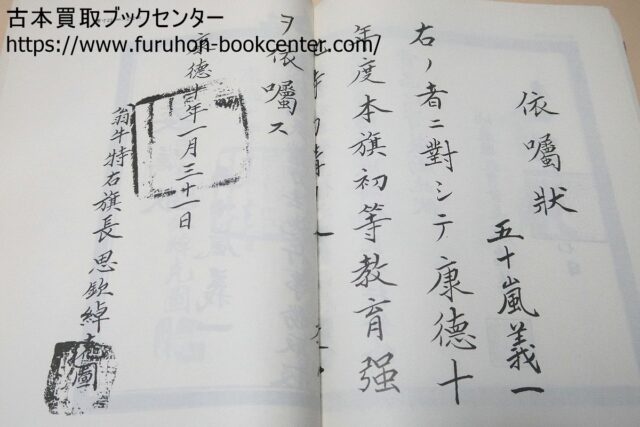 古本買取ブックセンター
https://www.furuhon-bookcenter.com/
依囑狀
五十嵐義一
右ノ者ニ對シテ康德十
年度本旗初等教育强
ヲ依囑ス
康德十年一月三十一日
翁牛特右旗長思欽綽克圖